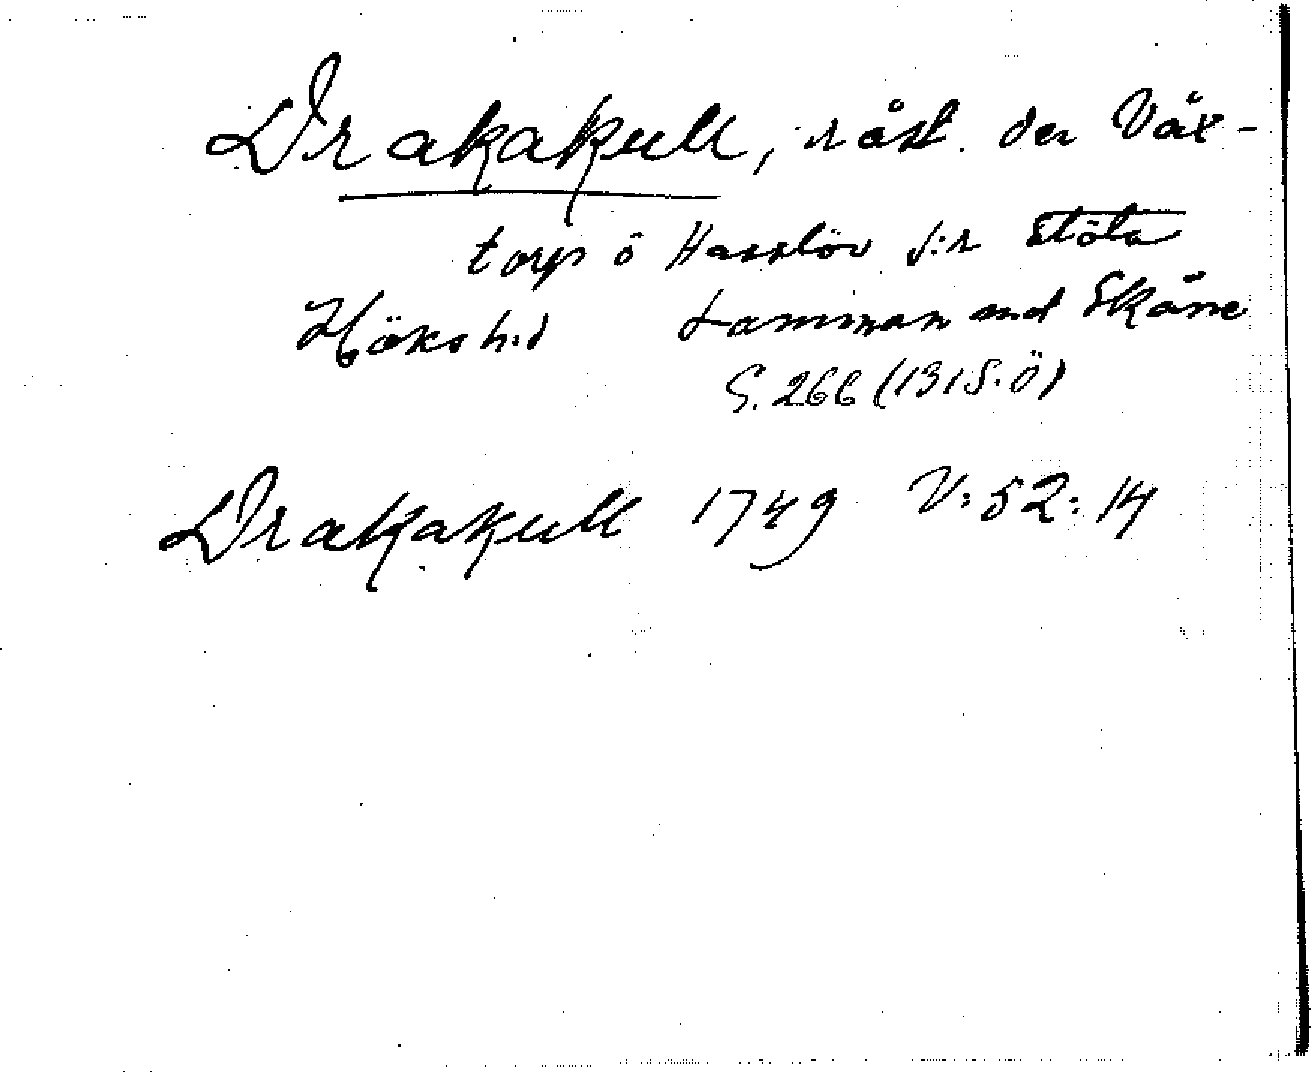 Drakakull, råst. der Väx-
torp ö Hasslöv s:n stöta
Höks h:d samman med Skåne
S. 266 (1315. Ö)
Drakakull 1749 V: 52: 14